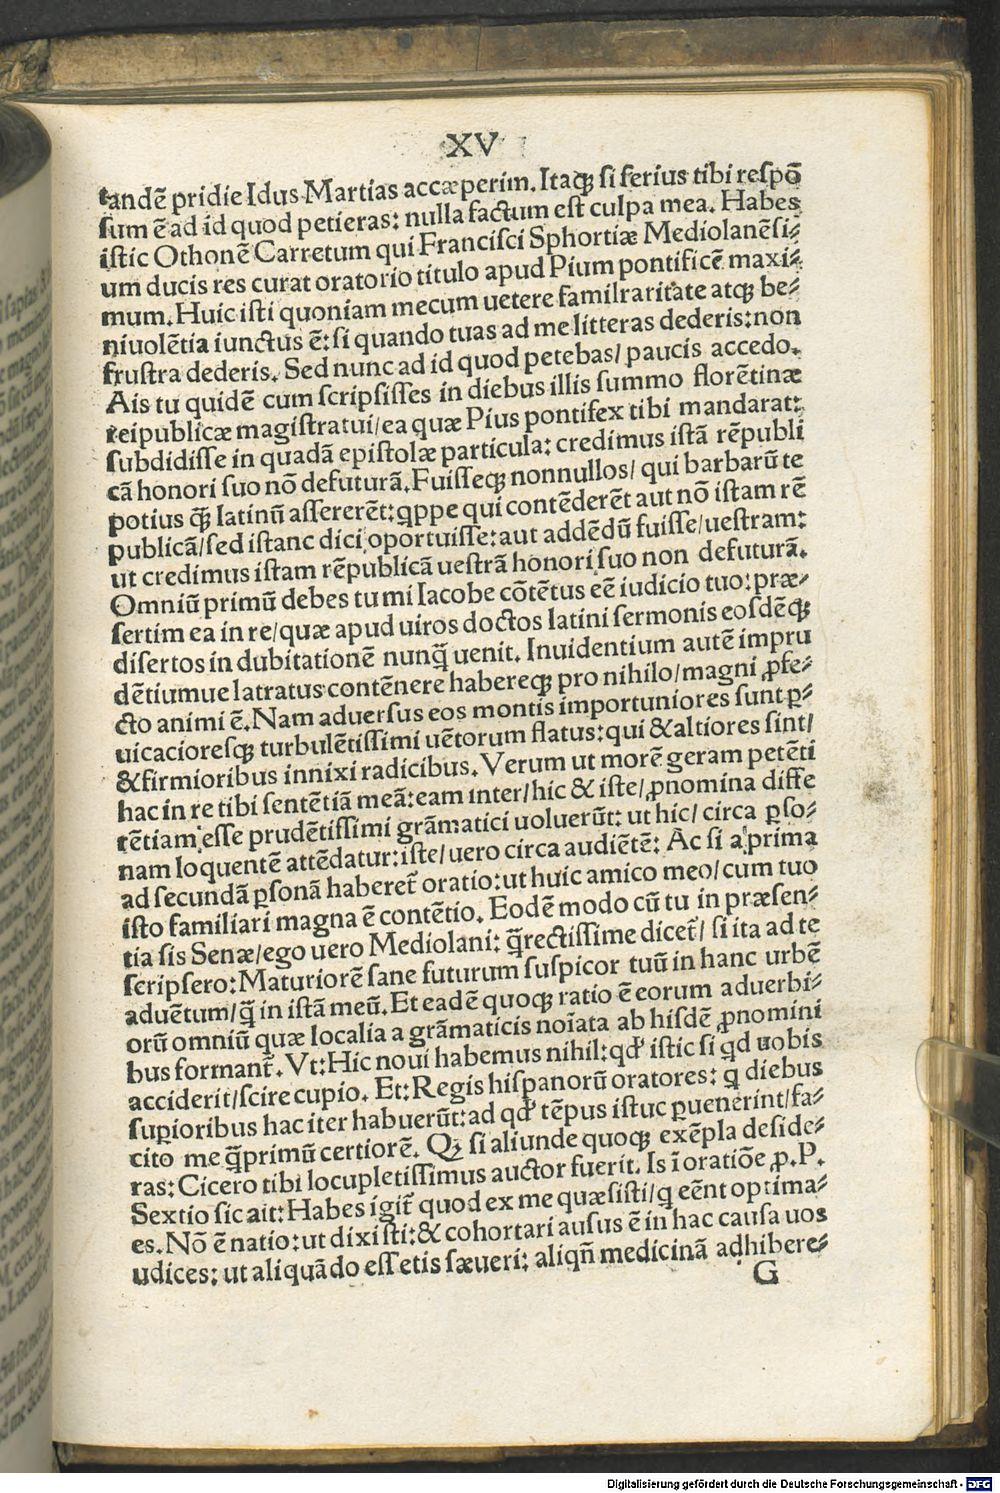 XV
tandē pridie Idus Martias accæperim. Itaqꝫ si ferius tibi respō
sum ē ad id quod petieras: nulla factum est culpa mea. Habes
istic Othonē Carretum qui Francisci Sphortiæ Mediolanēsi⸗
um ducis res curat oratorio titulo apud Pium pontificē maxi⸗
mum. Huic isti quoniam mecum uetere familraritate atqꝫ be⸗
niuolētia iunctus ē: si quando tuas ad me litteras dederis: non
frustra dederis. Sed nunc ad id quod petebas/ paucis accedo.
Ais tu quidē cum scripsisses in diebus illis summo florētinæ
reipublicæ magistratui/ ea quæ Pius pontifex tibi mandarat:
subdidisse in quadā epistolæ particula: credimus istā rēpubli
cā honori suo nō defuturā. Fuisseqꝫ nonnullos/ qui barbarū te
potius q̄ꝫ latinū assererēt: qppe qui contēderēt aut nō istam rē
publicā/ sed istanc dici oportuisse: aut addēdū fuisse/ uestram:
ut credimus istam rēpublicā uestrā honori suo non defuturā.
Omniū primū debes tu mi Iacobe cōtētus eē iudicio tuo: præ⸗
sertim ea in re/ quæ apud uiros doctos latini sermonis eosdēqꝫ
disertos in dubitationē nunq̄ uenit. Inuidentium autē impru
dētiumue latratus contēnere habereqꝫ pro nihilo/ magni ꝓfe⸗
cto animi ē. Nam aduersus eos montis importuniores sunt ꝑ⸗
uicacioresqꝫ turbulētissimi uētorum flatus: qui & altiores sint/
& firmioribus innixi radicibus. Verum ut morē geram petēti
hac in re tibi sentētiā meā: eam inter/ hic & iste/ ꝓnomina diffe
rētiam esse prudētissimi grāmatici uoluerūt: ut hic/ circa ꝑso⸗
nam loquentē attēdatur: iste/ uero circa audiētē: Ac si a prima
ad secundā ꝑsonā haberet̄ oratio: ut huic amico meo/ cum tuo
isto familiari magna ē contētio. Eodē modo cū tu in præsen⸗
tia sis Senæ/ ego uero Mediolani: q̄rectissime dicet̄/ si ita ad te
scripsero: Maturiorē sane futurum suspicor tuū in hanc urbē
aduētum/ q̄ in istā meū. Et eadē quoqꝫ ratio ē eorum aduerbi⸗
orū omniū quæ localia a grāmaticis noīata ab hisdē ꝓnomini
bus formant̄. Vt: Hic noui habemus nihil: qd' istic si qd uobis
acciderit/ scire cupio. Et: Regis hispanorū oratores: q diebus
suꝑioribus hac iter habuerūt: ad qd' tēpus istuc ꝑuenerint/ fa⸗
cito me q̄primū certiorē. Qꝫ si aliunde quoqꝫ exēpla deside⸗
ras: Cicero tibi locupletissimus auctor fuerit. Is ī oratiōe ꝓ. P.
Sextio sic ait: Habes igit̄ quod ex me quæsisti/ q eēnt optima⸗
es. Nō ē natio: ut dixisti: & cohortari ausus ē in hac causa uos
udices: ut aliquādo essetis sæueri: aliqn̄ medicinā adhibere⸗
G
Digitalisierung gefördert durch die Deutsche Forschungsgemeinschaft - DFG